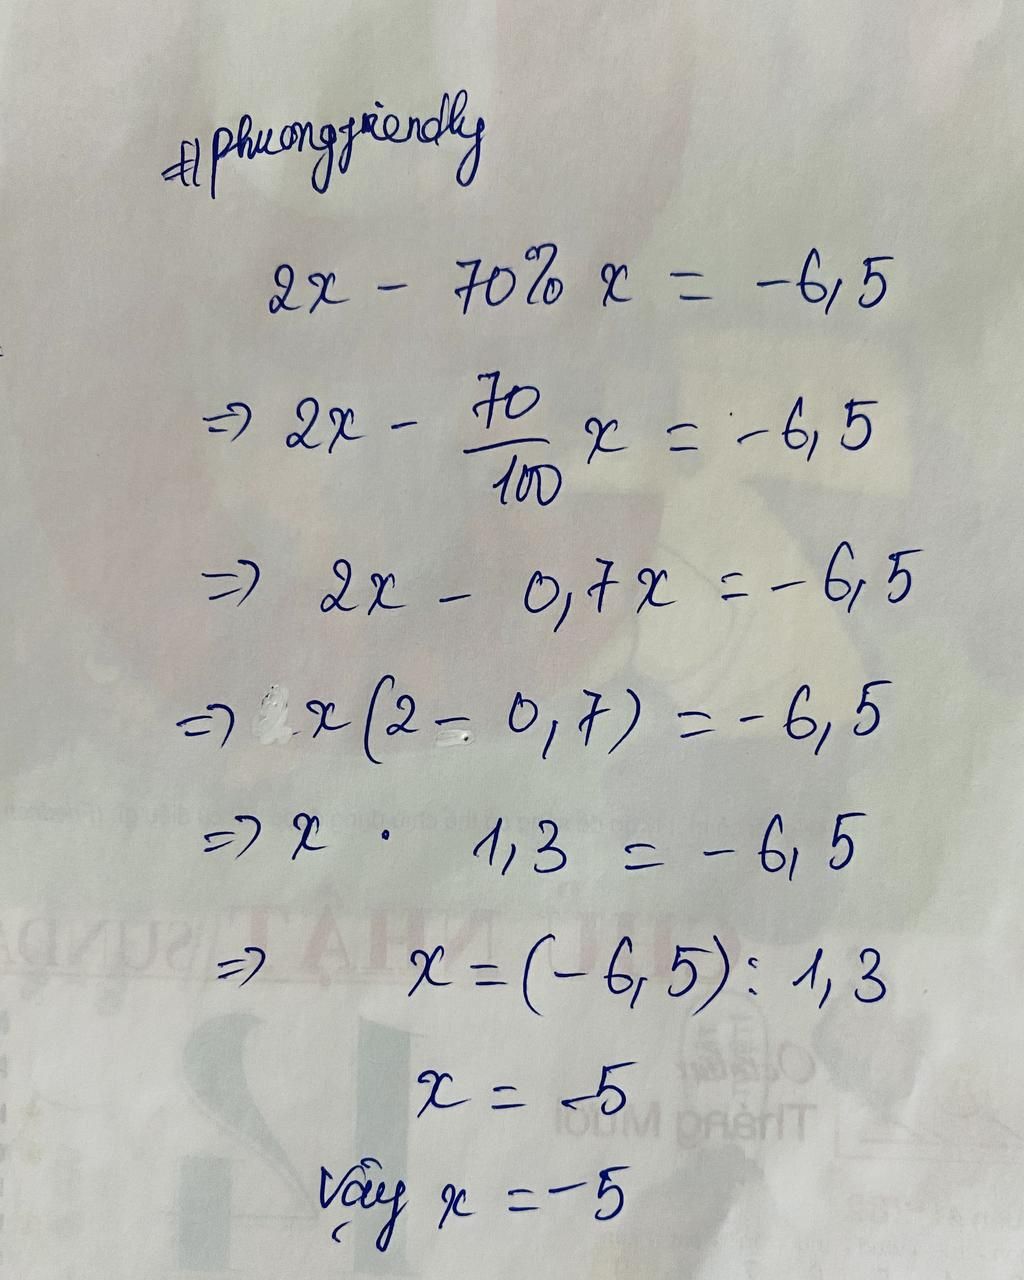 #phuongfriendly
2x - 70% x = -6,5
=> 2x - 70/100 x = -6,5
=> 2x - 0,7x = -6,5
=> x(2 - 0,7) = -6,5
=> x . 1,3 = -6,5
=> x = (-6,5) : 1,3
x = -5
Vậy x = -5
CHỦ NHẬT SUNDA
Tháng Mười
12